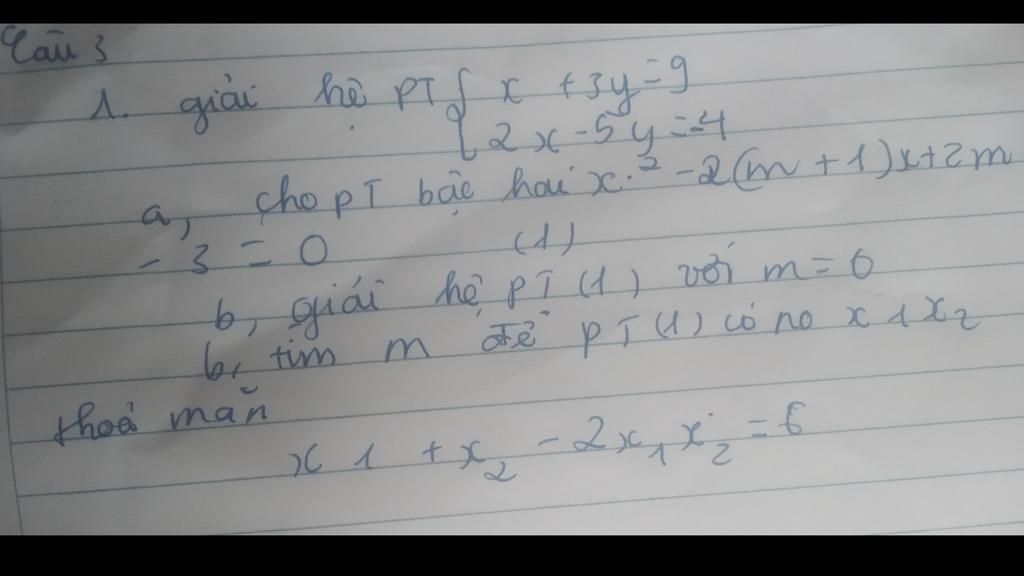 Câu 3
1. giải hệ PT { x + 3y = 9
2x - 5y = -4
a, cho pT bậc hai x.² - 2(m + 1)x + 2m
- 3 = 0 (1)
b, giải hệ pT (1) với m = 0
b, tìm m để pT (1) có no x 1 x₂
thoả mãn
x 1 + x₂ - 2x₁x₂ = 6